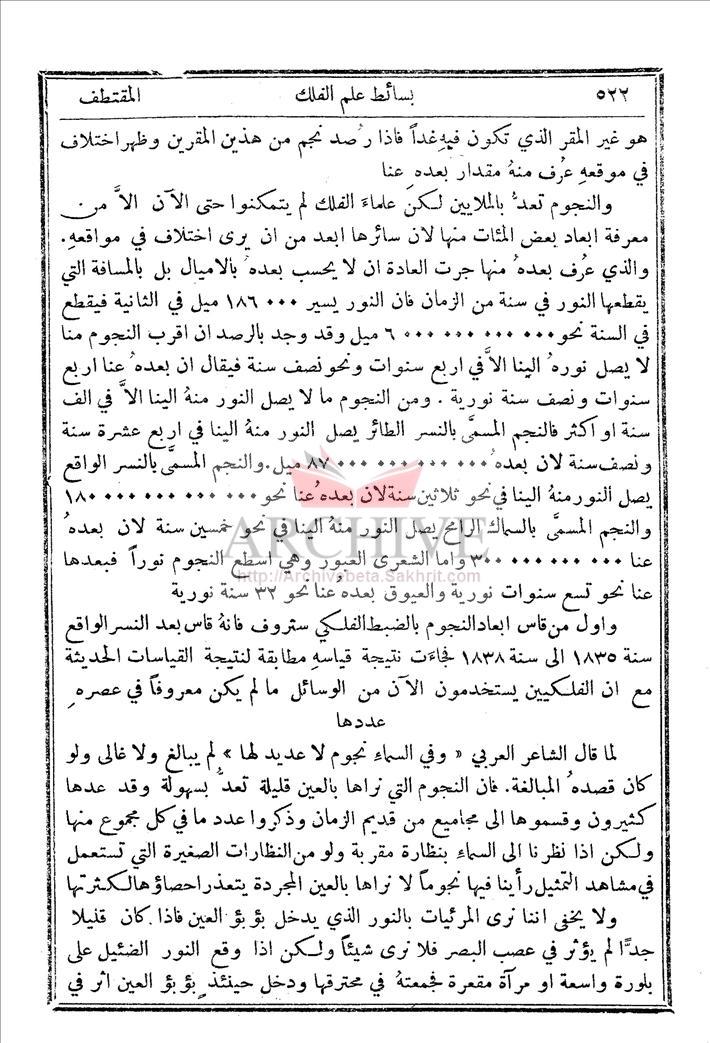 ٥٢٢ بسائط علم الفلك المقتطف
هو غير المقر الذي تكون فيهِ غداً فاذا رُصد نجم من هذين المقرين وظهر اختلاف
في موقعهِ عرُف منهُ مقدار بعدهِ عنا
والنجوم تعدُّ بالملايين لكن علماءَ الفلك لم يتمكنوا حتى الآن الاَّ من
معرفة ابعاد بعض المئات منها لان سائرها ابعد من ان يرى اختلاف في مواقعهِ.
والذي عرُف بعدهُ منها جرت العادة ان لا يحسب بعدهُ بالاميال بل بالمسافة التي
يقطعها النور في سنة من الزمان فان النور يسير ١٨٦٠٠٠ ميل في الثانية فيقطع
في السنة نحو ٦٠٠٠٠٠٠٠٠٠٠٠٠ ميل وقد وجد بالرصد ان اقرب النجوم منا
لا يصل نورهُ الينا الاَّ في اربع سنوات ونحو نصف سنة فيقال ان بعدهُ عنا اربع
سنوات ونصف سنة نورية . ومن النجوم ما لا يصل النور منهُ الينا الاَّ في الف
سنة او اكثر فالنجم المسمَّى بالنسر الطائر يصل النور منهُ الينا في اربع عشرة سنة
ونصف سنة لان بعدهُ ٨٧٠٠٠٠٠٠٠٠٠٠٠٠ ميل. والنجم المسمَّى بالنسر الواقع
يصل النور منهُ الينا في نحو ثلاثين سنة لان بعدهُ عنا نحو ١٨٠٠٠٠٠٠٠٠٠٠٠٠٠
والنجم المسمَّى بالسماك الرامح يصل النور منهُ الينا في نحو خمسين سنة لان بعدهُ
عنا ٣٠٠٠٠٠٠٠٠٠٠٠٠٠٠ واما الشعرى العبور وهي اسطع النجوم نوراً فبعدها
عنا نحو تسع سنوات نورية والعيوق بعدهُ عنا نحو ٣٢ سنة نورية
واول من قاس ابعاد النجوم بالضبط الفلكي ستروف فانهُ قاس بعد النسر الواقع
سنة ١٨٣٥ الى سنة ١٨٣٨ فجاءَت نتيجة قياسهِ مطابقة لنتيجة القياسات الحديثة
مع ان الفلكيين يستخدمون الآن من الوسائل ما لم يكن معروفاً في عصرهِ
عددها
لما قال الشاعر العربي « وفي السماءِ نجوم لا عديد لها » لم يبالغ ولا غالى ولو
كان قصدهُ المبالغة. فان النجوم التي نراها بالعين قليلة تعدُّ بسهولة وقد عدها
كثيرون وقسموها الى مجاميع من قديم الزمان وذكروا عدد ما في كل مجموع منها
ولكن اذا نظرنا الى السماءِ بنظارة مقربة ولو من النظارات الصغيرة التي تستعمل
في مشاهد التمثيل رأينا فيها نجوماً لا نراها بالعين المجردة يتعذر احصاؤها لكثرتها
ولا يخفى اننا نرى المرئيات بالنور الذي يدخل بؤبؤ العين فاذا كان قليلا
جدًّا لم يؤثر في عصب البصر فلا نرى شيئاً ولكن اذا وقع النور الضئيل على
بلورة واسعة او مرآة مقعرة فجمعتهُ في محترقها ودخل حينئذٍ بؤبؤ العين اثر في
ARCHIVE
http://Archivebeta.Sakhrit.com